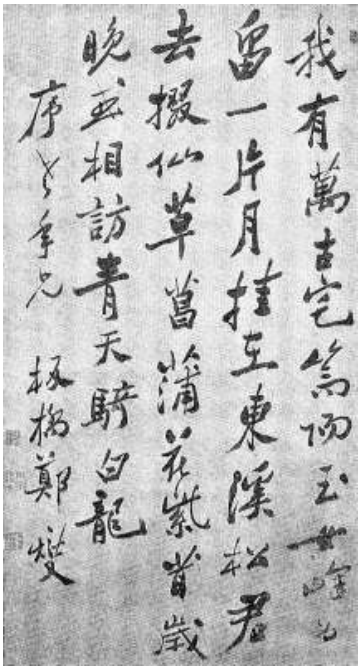 我有萬古宅嵩陽玉女峰
留一片月挂在東溪松君
去掇仙草菖蒲花紫茸歲
晚或相訪青天騎白龍
序老年兄 板橋鄭燮